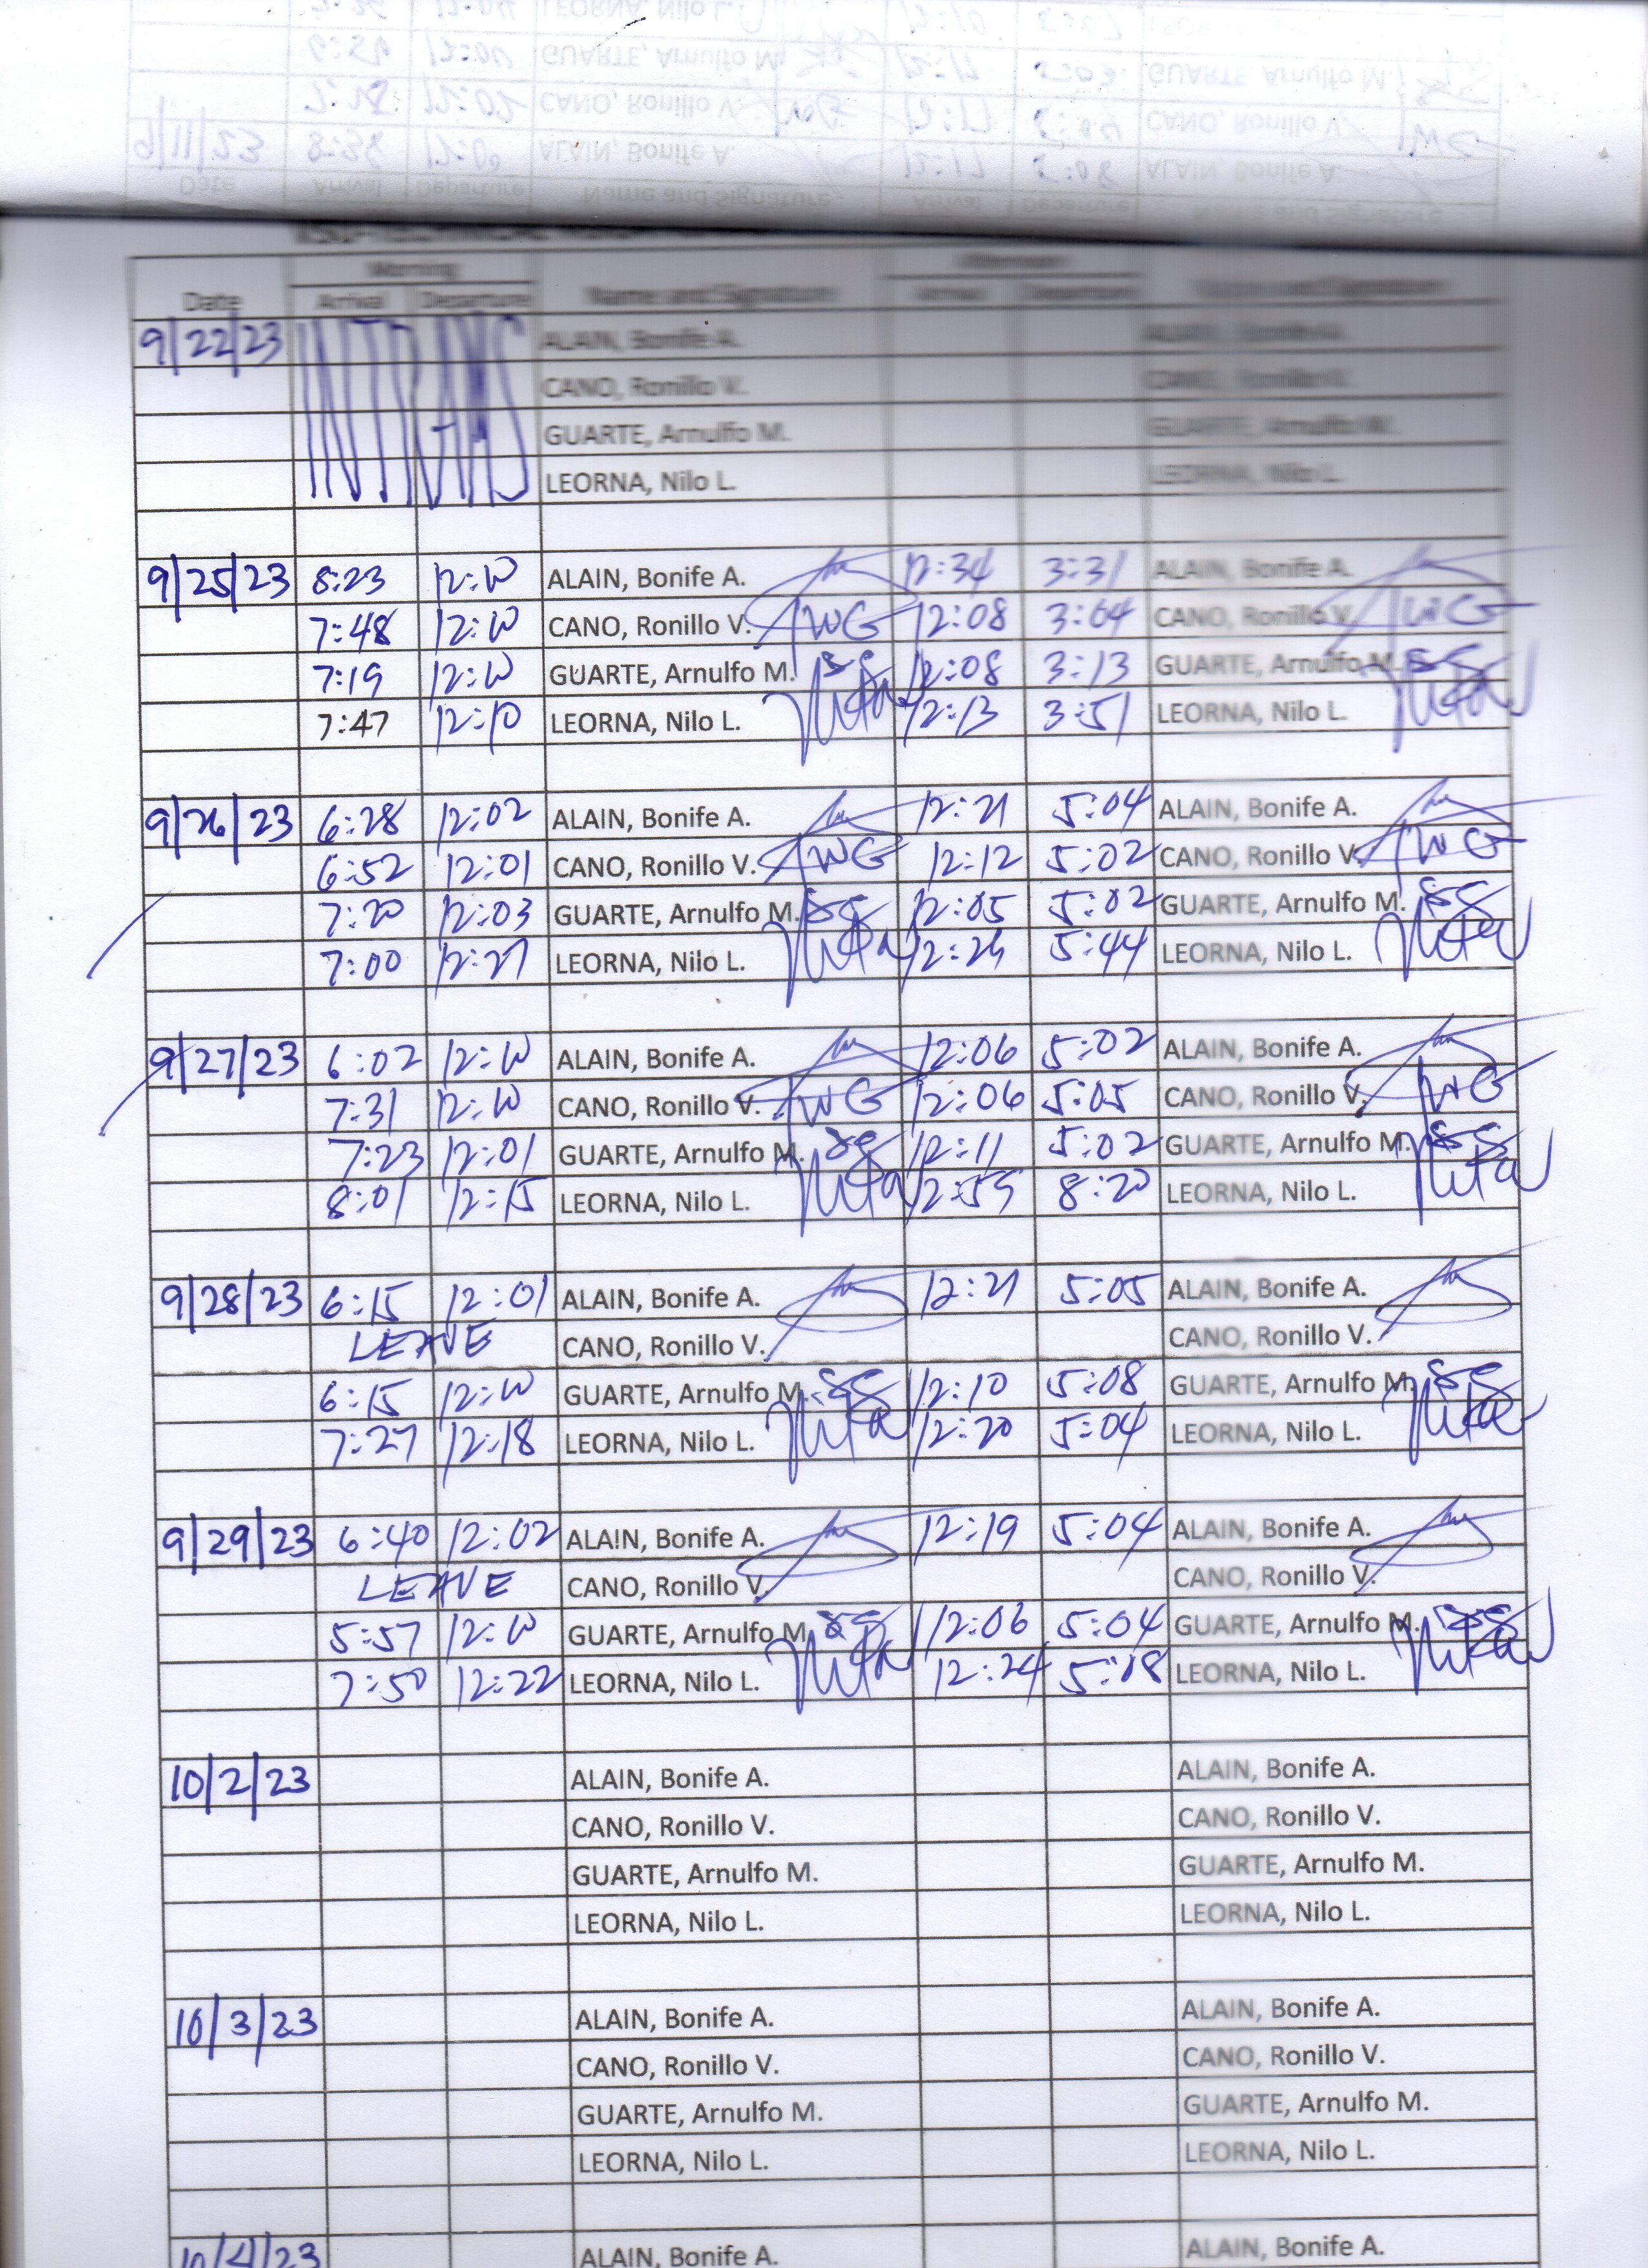 Date Morning Name and Signature Afternoon Name and Signature
Arrival Departure Arrival Departure
9/22/23 INTRAMS ALAIN, Bonife A. ALAIN, Bonife A.
CANO, Ronillo V. CANO, Ronillo V.
GUARTE, Arnulfo M. GUARTE, Arnulfo M.
LEORNA, Nilo L. LEORNA, Nilo L.
9/25/23 8:23 12:10 ALAIN, Bonife A. 12:34 3:31 ALAIN, Bonife A.
7:48 12:10 CANO, Ronillo V. 12:08 3:04 CANO, Ronillo V.
7:19 12:10 GUARTE, Arnulfo M. 12:08 3:13 GUARTE, Arnulfo M.
7:47 12:10 LEORNA, Nilo L. 12:13 3:51 LEORNA, Nilo L.
9/26/23 6:28 12:02 ALAIN, Bonife A. 12:21 5:04 ALAIN, Bonife A.
6:52 12:01 CANO, Ronillo V. 12:12 5:02 CANO, Ronillo V.
7:20 12:03 GUARTE, Arnulfo M. 12:05 5:02 GUARTE, Arnulfo M.
7:00 12:27 LEORNA, Nilo L. 5:44 LEORNA, Nilo L.
9/27/23 6:02 12:10 ALAIN, Bonife A. 12:06 5:02 ALAIN, Bonife A.
7:31 12:10 CANO, Ronillo V. 12:06 5:05 CANO, Ronillo V.
7:23 12:01 GUARTE, Arnulfo M. 12:11 5:02 GUARTE, Arnulfo M.
8:01 12:15 LEORNA, Nilo L. 8:20 LEORNA, Nilo L.
9/28/23 6:15 12:01 ALAIN, Bonife A. 12:21 5:05 ALAIN, Bonife A.
LEAVE CANO, Ronillo V. CANO, Ronillo V.
6:15 12:10 GUARTE, Arnulfo M. 12:10 5:08 GUARTE, Arnulfo M.
7:27 12:18 LEORNA, Nilo L. 12:20 5:04 LEORNA, Nilo L.
9/29/23 6:40 12:02 ALAIN, Bonife A. 12:19 5:04 ALAIN, Bonife A.
LEAVE CANO, Ronillo V. CANO, Ronillo V.
5:57 12:10 GUARTE, Arnulfo M. 12:06 5:04 GUARTE, Arnulfo M.
7:50 12:22 LEORNA, Nilo L. 12:24 5:18 LEORNA, Nilo L.
10/2/23 ALAIN, Bonife A. ALAIN, Bonife A.
CANO, Ronillo V. CANO, Ronillo V.
GUARTE, Arnulfo M. GUARTE, Arnulfo M.
LEORNA, Nilo L. LEORNA, Nilo L.
10/3/23 ALAIN, Bonife A. ALAIN, Bonife A.
CANO, Ronillo V. CANO, Ronillo V.
GUARTE, Arnulfo M. GUARTE, Arnulfo M.
LEORNA, Nilo L. LEORNA, Nilo L.
10/4/23 ALAIN, Bonife A. ALAIN, Bonife A.